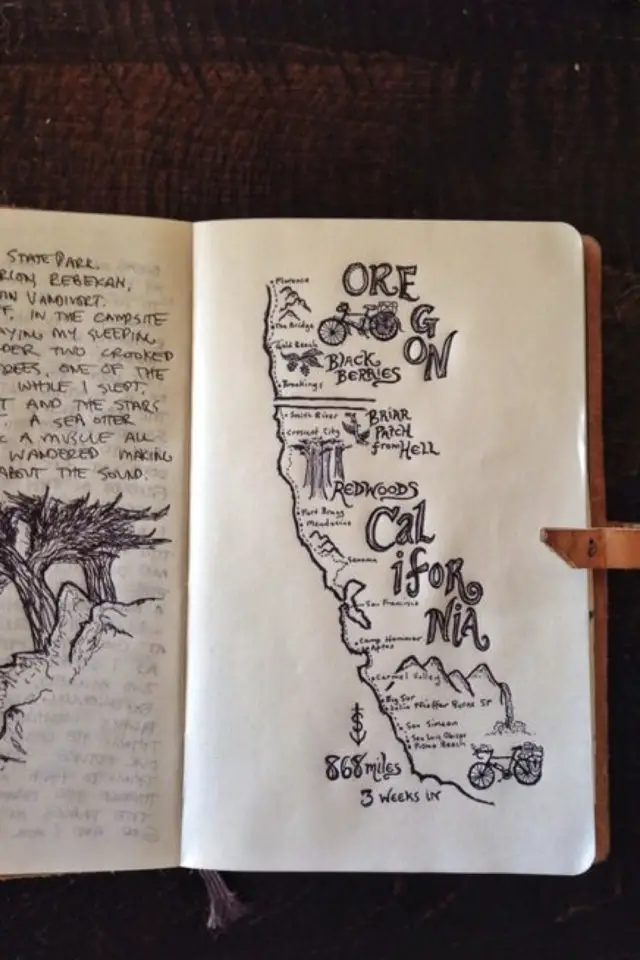 STATE PARK.
REBEKAH,
VANDIVORT.
IN THE CAMPSITE
MY SLEEPING
TWO CROOKED
ONE OF THE
WHILE I SLEPT,
AND THE STARS
A SEA OTTER
A MUSCLE ALL
WANDERED MAKING
ABOUT THE SOUND.
OREGON
Florence
Gold Beach
BLACK
BERRIES
Brookings
Smith River
BRIAR
PATCH
from HELL
Crescent City
REDWOODS
Fort Bragg
Mendocino
California
Sonoma
San Francisco
Camp Hammer
Aptos
Carmel Valley
Big Sur
Julia Pfeiffer Burns SP
San Simeon
San Luis Obispo
Pismo Beach
868 miles
3 WEEKS IN